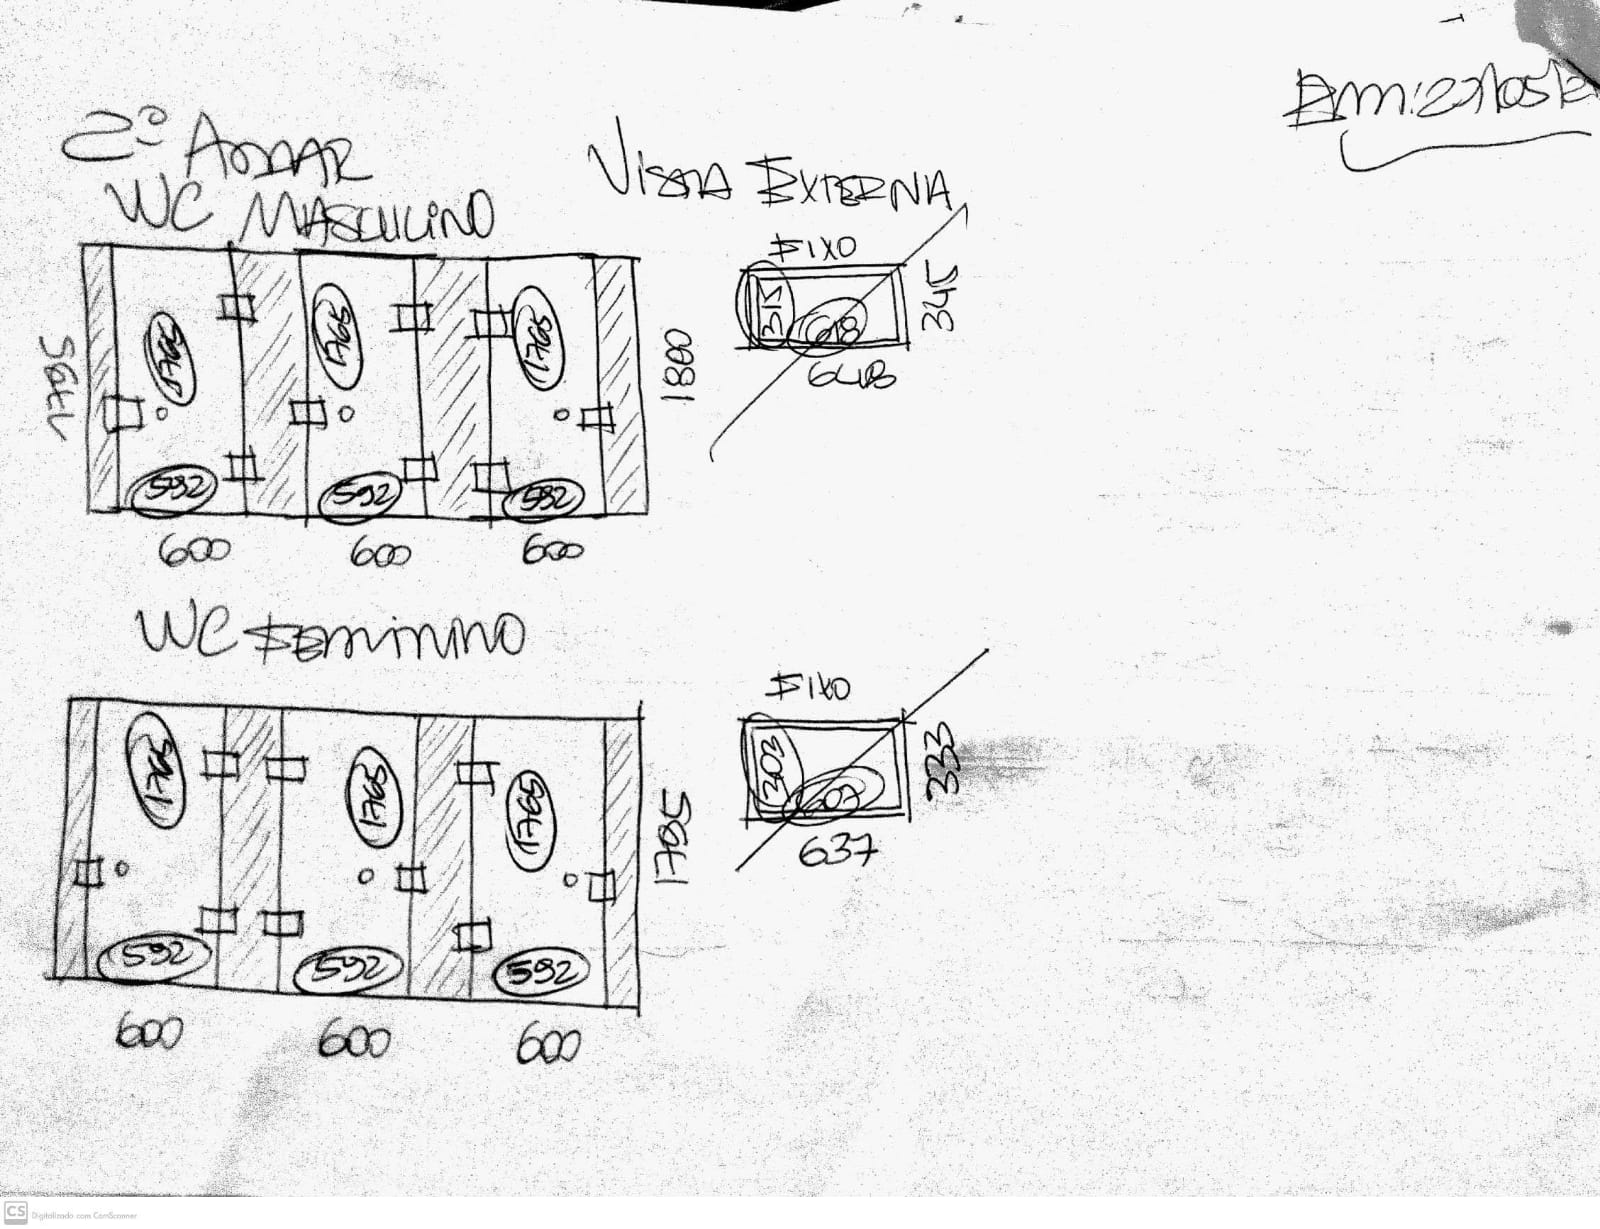 Em: 27/05/2
2º ANDAR
WC MASCULINO
VISTA EXTERNA
FIXO
1795
1765
1765
1765
1800
315
618
345
648
592
592
592
600
600
600
WC FEMININO
FIXO
1765
1765
1765
1795
303
607
333
637
592
592
592
600
600
600
CS Digitalizado com CamScanner